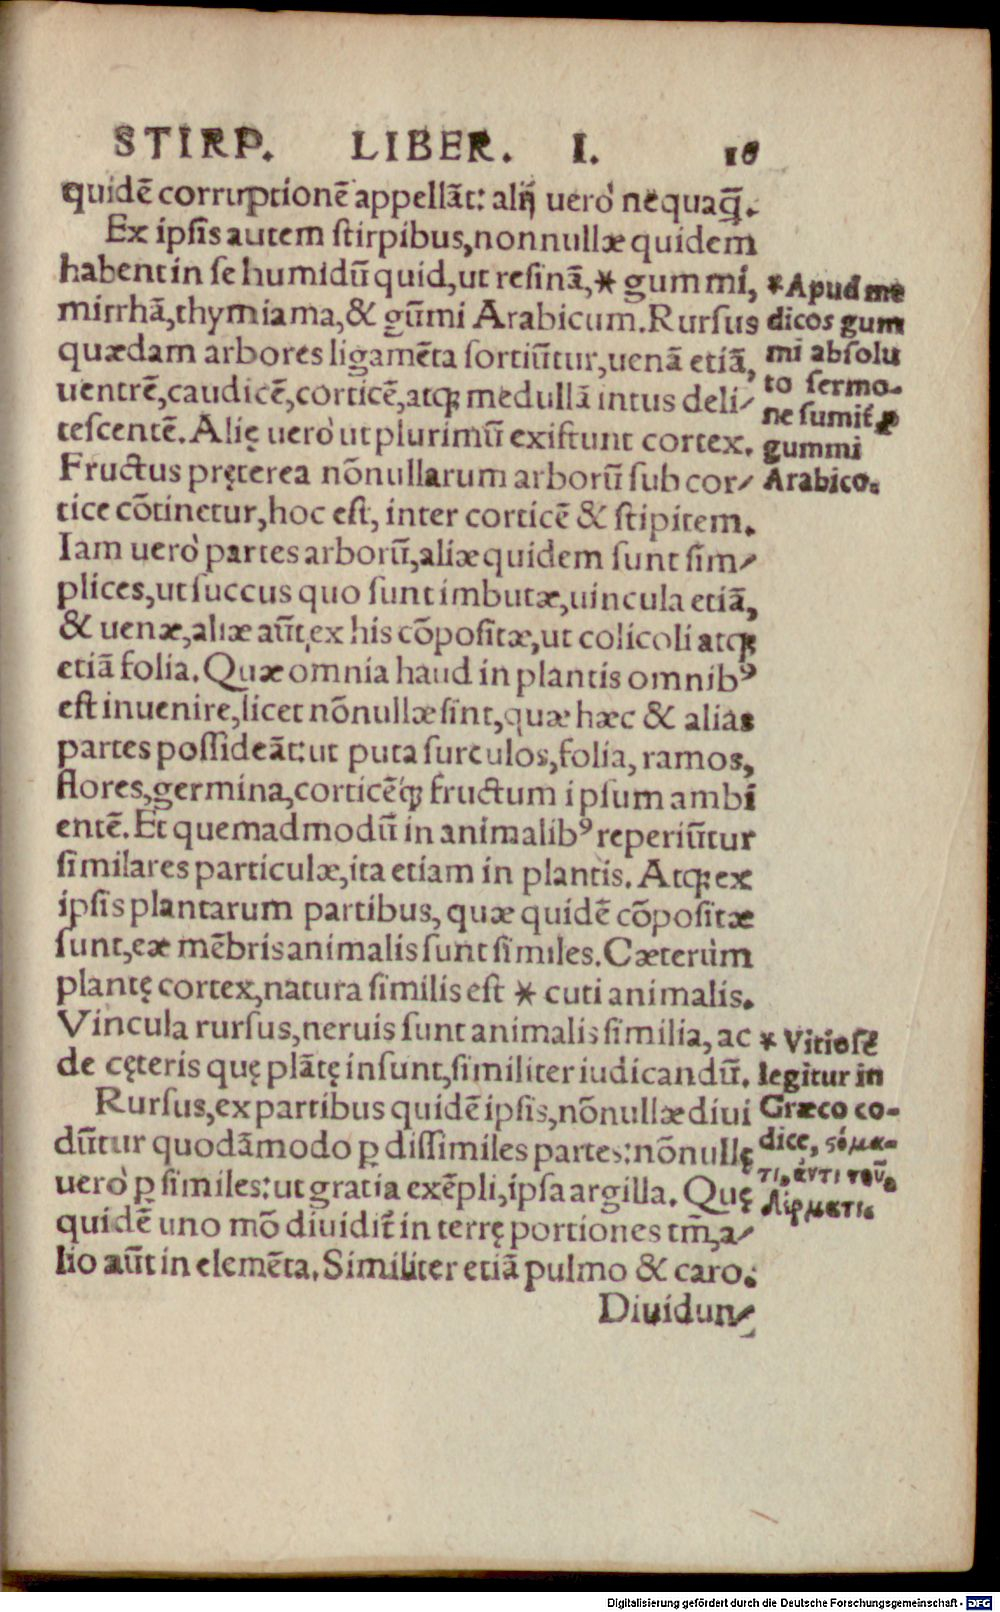 STIRP. LIBER. I. 18
quidē corruptionē appellāt: alij uero nequaq̄.
Ex ipsis autem stirpibus, nonnullæ quidem
habent in se humidū quid, ut resinā, * gummi,
mirrhā, thymiama, & gūmi Arabicum. Rursus
quædam arbores ligamēta sortiūtur, uenā etiā,
uentrē, caudicē, corticē, atq; medullā intus deli-
tescentē. Alię uero ut plurimū existunt cortex.
Fructus pręterea nōnullarum arborū sub cor-
tice cōtinetur, hoc est, inter corticē & stipitem.
Iam uero partes arborū, aliæ quidem sunt sim-
plices, ut succus quo sunt imbutæ, uincula etiā,
& uenæ, aliæ aūt, ex his cōpositæ, ut colicoli atq;
etiā folia. Quæ omnia haud in plantis omnib⁹
est inuenire, licet nōnullæ sint, quæ hæc & alias
partes possideāt: ut puta surculos, folia, ramos,
flores, germina, corticēq; fructum ipsum ambi
entē. Et quemadmodū in animalib⁹ reperiūtur
similares particulæ, ita etiam in plantis. Atq; ex
ipsis plantarum partibus, quæ quidē cōpositæ
sunt, eæ mēbris animalis sunt similes. Cæterùm
plantę cortex, natura similis est * cuti animalis.
Vincula rursus, neruis sunt animalis similia, ac
de cęteris quę plātę insunt, similiter iudicandū.
Rursus, ex partibus quidē ipsis, nōnullæ diui
dūtur quodāmodo ꝑ dissimiles partes: nōnullę
uero ꝑ similes: ut gratia exēpli, ipsa argilla. Quę
quidē uno mō diuidit̃ in terrę portiones tm̄, a-
lio aūt in elemēta. Similiter etiā pulmo & caro.
Diuidun-
* Apud me
dicos gum
mi absolu
to sermo-
ne sumit̃ ꝓ
gummi
Arabico.
* Vitiosē
legitur in
Græco co-
dice, σόμα-
τι, ἀντὶ τοῦ
δέρματι.
Digitalisierung gefördert durch die Deutsche Forschungsgemeinschaft - DFG